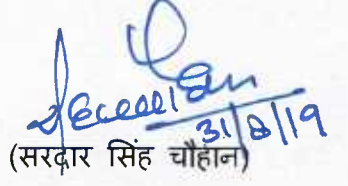 31/8/19
(सरदार सिंह चौहान)